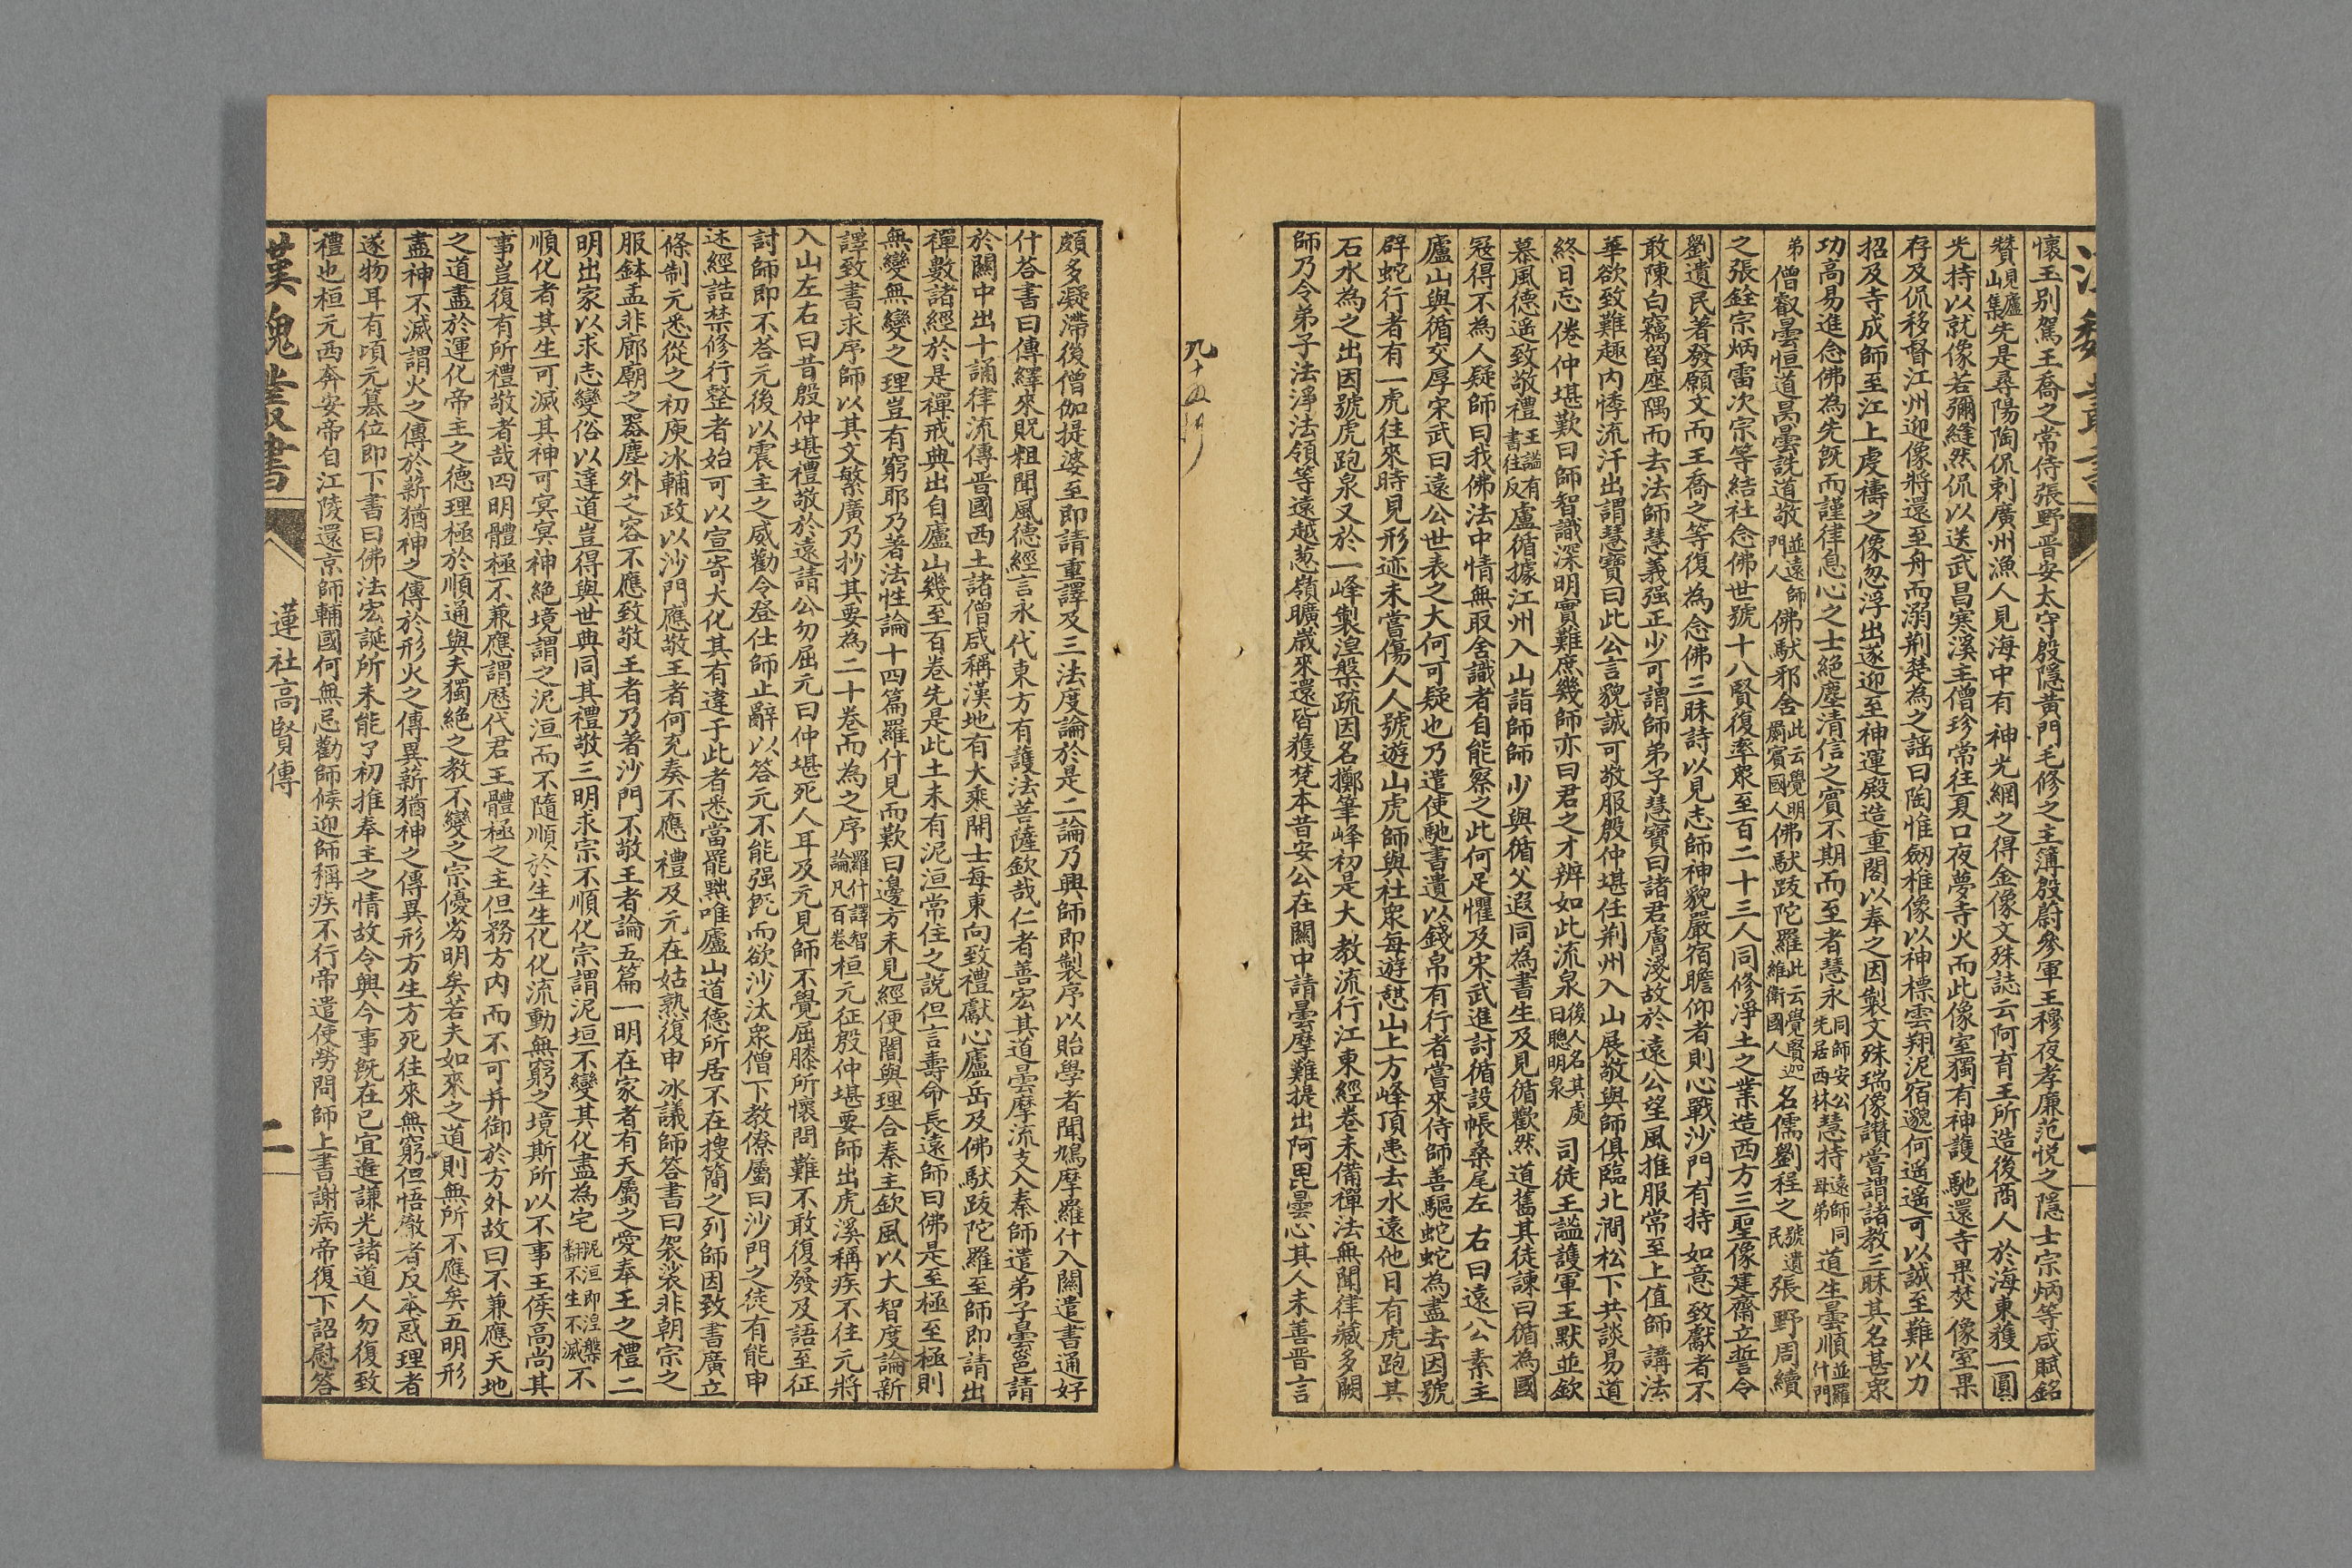 懷玉別駕王喬之常侍張野晉安太守殷隱黃門毛修之主簿殷蔚參軍王穆夜孝廉范悅之隱士宗炳等咸賦銘
贊見廬山集先是尋陽陶侃刺廣州漁人見海中有神光網之得金像文殊誌云阿育王所造後商人於海東獲一圓
光持以就像若彌縫然侃以送武昌寒溪主僧珍常往夏口夜夢寺火而此像室獨有神護馳還寺果焚像室果
存及侃移督江州迎像將還至舟而溺荆楚為之謡曰陶惟劒雄像以神標雲翔泥宿邈何遥遥可以誠至難以力
招及寺成師至江上虔禱之像忽浮出遂迎至神運殿造重閣以奉之因製文殊瑞像讚嘗謂諸教三昧其名甚衆
功高易進念佛為先旣而謹律息心之士絕塵清信之賓不期而至者慧永同師安公先居西林慧持遠師同母弟道生曇順並羅什門
弟僧叡曇恒道昺曇詵道敬並遠師門人佛馱邪舍此云覺明罽賓國人佛馱跋陀羅此云覺賢迦維衛國人名儒劉程之號遺民張野周續
之張銓宗炳雷次宗等結社念佛世號十八賢復率衆至百二十三人同修淨土之業造西方三聖像建齋立誓令
劉遺民著發願文而王喬之等復為念佛三昧詩以見志師神貌嚴宿瞻仰者則心戰沙門有持如意致獻者不
敢陳白竊留座隅而去法師慧義强正少可謂師弟子慧寶曰諸君膚淺故於遠公望風推服常至上值師講法
華欲致難趣內悸流汗出謂慧寶曰此公言貌誠可敬服殷仲堪任荆州入山展敬與師俱臨北澗松下共談易道
終日忘倦仲堪歎曰師智識深明實難庶幾師亦曰君之才辨如此流泉後人名其處曰聰明泉司徒王謐護軍王默並欽
慕風德遥致敬禮王謐有書往反盧循據江州入山詣師師少與循父遐同為書生及見循歡然道舊其徒諫曰循為國
冦得不為人疑師曰我佛法中情無取舍識者自能察之此何足懼及宋武進討循設帳桑尾左右曰遠公素主
廬山與循交厚宋武曰遠公世表之大何可疑也乃遣使馳書遺以錢帛有行者嘗來侍師善驅蛇蛇為盡去因號
辟蛇行者有一虎往來時見形迹未嘗傷人人號遊山虎師與社衆每遊憇山上方峰頂患去水遠他日有虎跑其
石水為之出因號虎跑泉又於一峰製湼槃疏因名擲筆峰初是大教流行江東經卷未備禪法無聞律藏多闕
師乃令弟子法淨法領等遠越葱嶺曠歲來還皆獲梵本昔安公在關中請曇摩難提出阿毘曇心其人未善晉言
頗多凝滯後僧伽提婆至即請重譯及三法度論於是二論乃興師即製序以貽學者聞鳩摩羅什入關遣書通好
什荅書曰傳繹來貺粗聞風德經言末代東方有護法菩薩欽哉仁者善宏其道曇摩流支入秦師遣弟子曇邕請
於關中出十誦律流傳晉國西土諸僧咸稱漢地有大乘開士每東向致禮獻心廬岳及佛馱跋陀羅至師即請出
禪數諸經於是禪戒典出自廬山幾至百卷先是此土未有泥洹常住之說但言壽命長遠師曰佛是至極至極則
無變無變之理豈有窮耶乃著法性論十四篇羅什見而歎曰邊方未見經便闇與理合秦主欽風以大智度論新
譯致書求序師以其文繁廣乃抄其要為二十卷而為之序羅什譯智論凡百卷桓元征殷仲堪要師出虎溪稱疾不往元將
入山左右曰昔殷仲堪禮敬於遠請公勿屈元曰仲堪死人耳及元見師不覺屈膝所懷問難不敢復發及語至征
討師即不荅元後以震主之威勸令登仕師止辭以答元不能强旣而欲沙汰衆僧下教僚屬曰沙門之徒有能申
述經誥禁修行整者始可以宣寄大化其有違于此者悉當罷黜唯廬山道德所居不在搜簡之列師因致書廣立
條制元悉從之初庾冰輔政以沙門應敬王者何充奏不應禮及元在姑熟復申冰議師答書曰袈裟非朝宗之
服鉢盂非廊廟之器塵外之容不應致敬王者乃著沙門不敬王者論五篇一明在家者有天屬之愛奉王之禮二
明出家以求志變俗以達道豈得與世典同其禮敬三明求宗不順化宗謂泥垣不變其化盡為宅泥洹即湼槃翻不生不滅不
順化者其生可滅其神可冥冥神絕境謂之泥洹而不隨順於生生化化流動無窮之境斯所以不事王侯高尚其
事豈復有所禮敬者哉四明體極不兼應謂歷代君王體極之主但務方內而不可并御於方外故曰不兼應天地
之道盡於運化帝王之德理極於順通與夫獨絕之教不變之宗優劣明矣若夫如來之道則無所不應矣五明形
盡神不滅謂火之傳於薪猶神之傳於形火之傳異薪猶神之傳異形方生方死往來無窮但悟徹者反本惑理者
逐物耳有頃元篡位即下書曰佛法宏誕所未能了初推奉主之情故令興今事旣在已宜進謙光諸道人勿復致
禮也桓元西奔安帝自江陵還京師輔國何無忌勸師候迎師稱疾不行帝遣使勞問師上書謝病帝復下詔慰答
漢魏叢書 蓮社高賢傳 二